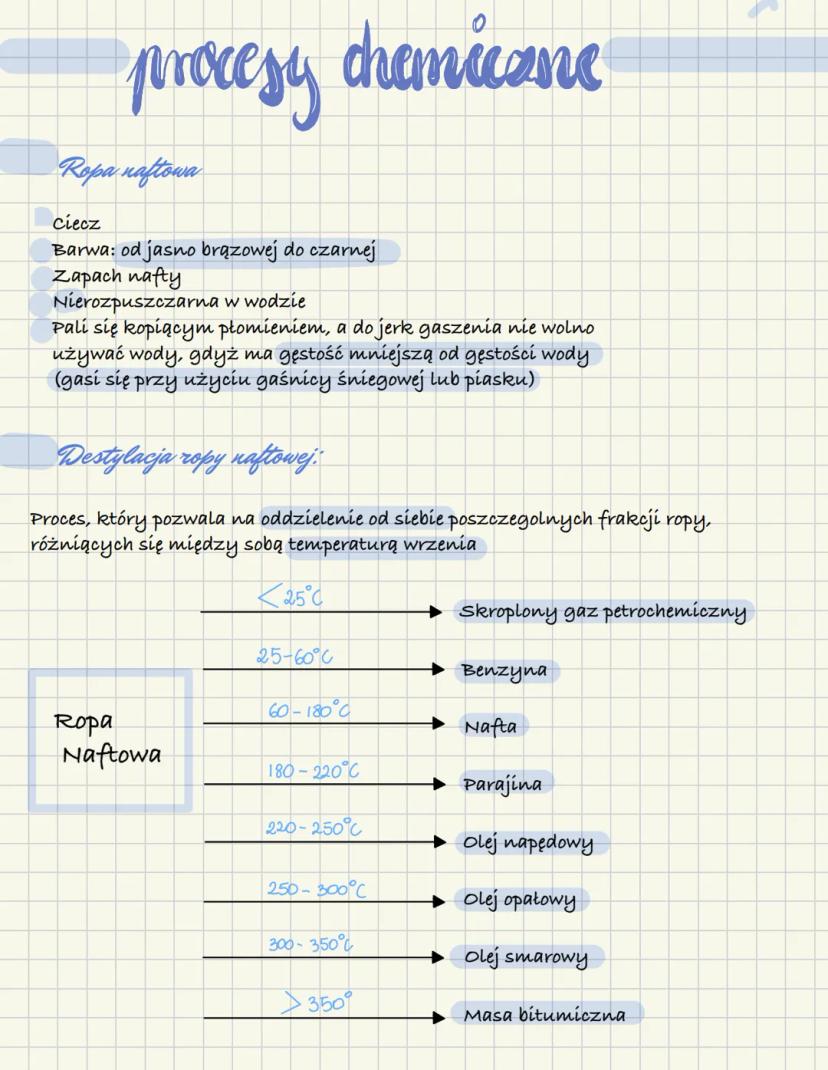 procesy chemiczne
Ropa naftowa
Ciecz
Barwa: od jasno brązowej do czarnej
Zapach nafty
Nierozpuszczarna w wodzie
Pali się kopiącym płomieniem, a do jerk gaszenia nie wolno
używać wody, gdyż ma gęstość mniejszą od gęstości wody
(gasi się przy użyciu gaśnicy śniegowej lub piasku)
Destylacja ropy naftowej:
Proces, który pozwala na oddzielenie od siebie poszczegolnych frakcji ropy,
różniących się między sobą temperaturą wrzenia
<25°C
Skroplony gaz petrochemiczny
25-60°C
Benzyna
60-180°C
Nafta
Ropa
Naftowa
180-220°C
Parajina
220-250°C
Olej napędowy
250-300°C
Olej opałowy
300-350°C
Olej smarowy
>350°
Masa bitumiczna